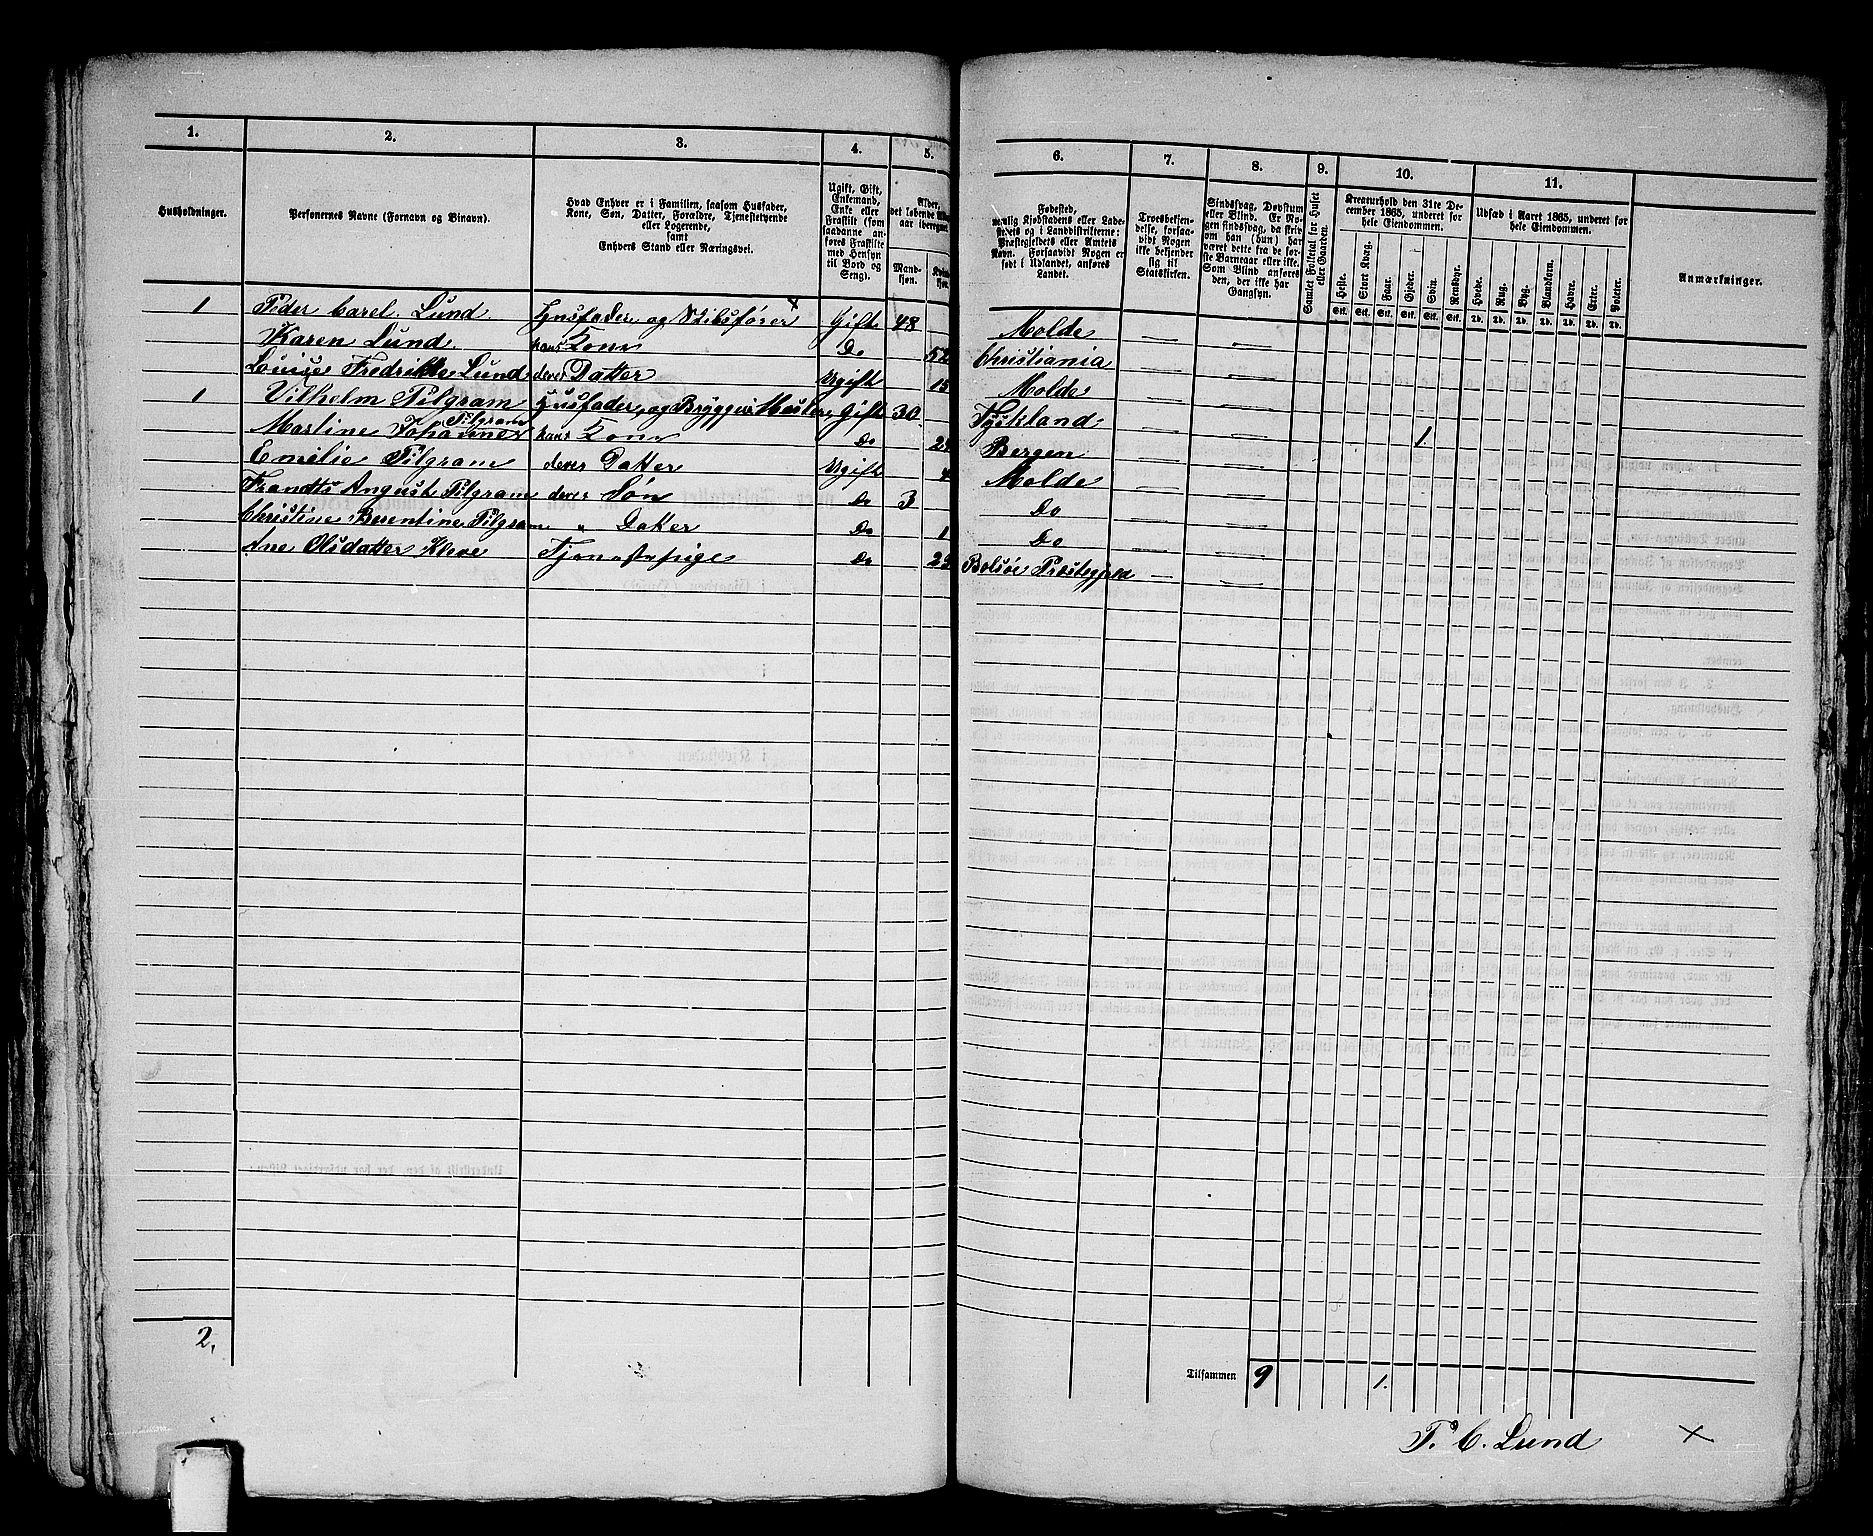 1. 2. 3. 4. 5. 6. 7. 8. 9. 10. 11.
Husholdninger.
Personernes Navne (Fornavn og Binavn).
Hvad Enhver er i Familien, saasom Husfader,
Kone, Søn, Datter, Forældre, Tjenestetyende
eller Logerende,
samt
Enhvers Stand eller Næringsvei.
Ugift, Gift,
Enkemand,
Enke eller
Fraskilt (som
saadanne an-
føres Fraskilte
med Hensyn
til Bord og
Seng).
Alder,
Mand-
kjøn.
Fødested,
nemlig Kjøbstadens eller Lade-
stedets og i Landdistrikterne:
Præstegjeldets eller Amtets
Navn. Forsaavidt Nogen er
født i Udlandet, anføres
Landet.
Troesbekjen-
delse, forsaa-
vidt Nogen
ikke bekjender
sig til
Statskirken.
Sindssvag, Døvstum
eller Blind. Er No-
gen sindssvag, da skriv
om han (hun) har
været dette fra de før-
ste Barneaar eller ikke.
Som Blind anføres
den, der ikke har
Gangsyn.
Samlet Folketal for Huset
eller Gaarden.
Kreaturhold den 31te De-
cember 1865, underet for
hele Eiendommen.
Heste. Stort Kvæg. Faar. Gjeder. Svin. Rensdyr.
Stk. Stk. Stk. Stk. Stk. Stk.
Udsæd i Aaret 1865, underet for
hele Eiendommen.
Hvede. Rug. Byg. Blandkorn. Havre. Erter. Poteter.
Td. Td. Td. Td. Td. Td. Td.
Anmærkninger.
1 Peder Carel Lund Husfader og Skibsfører x Gift 48 Molde — —
Karen Lund hans Kone Do 52 Christiania — —
Louise Fredrikke Lund deres Datter Ugift 15 Molde — —
1 Vilhelm Pilgram Husfader og Bryggeri Mester Gift 30 Tyskland — — 1
Martine Johanne Pilgram hans Kone Do Bergen — —
Emilie Pilgram deres Datter Ugift 4 Molde — —
Frandts August Pilgram deres Søn Do 3 Do — —
Christine Berentine Pilgram " Datter Do 1 Do — —
Ane Olsdatter Kleve Tjenestepige Do Bolsøe Præstegjeld — —
2.
Tilsammen 9 1.
P. C. Lund x